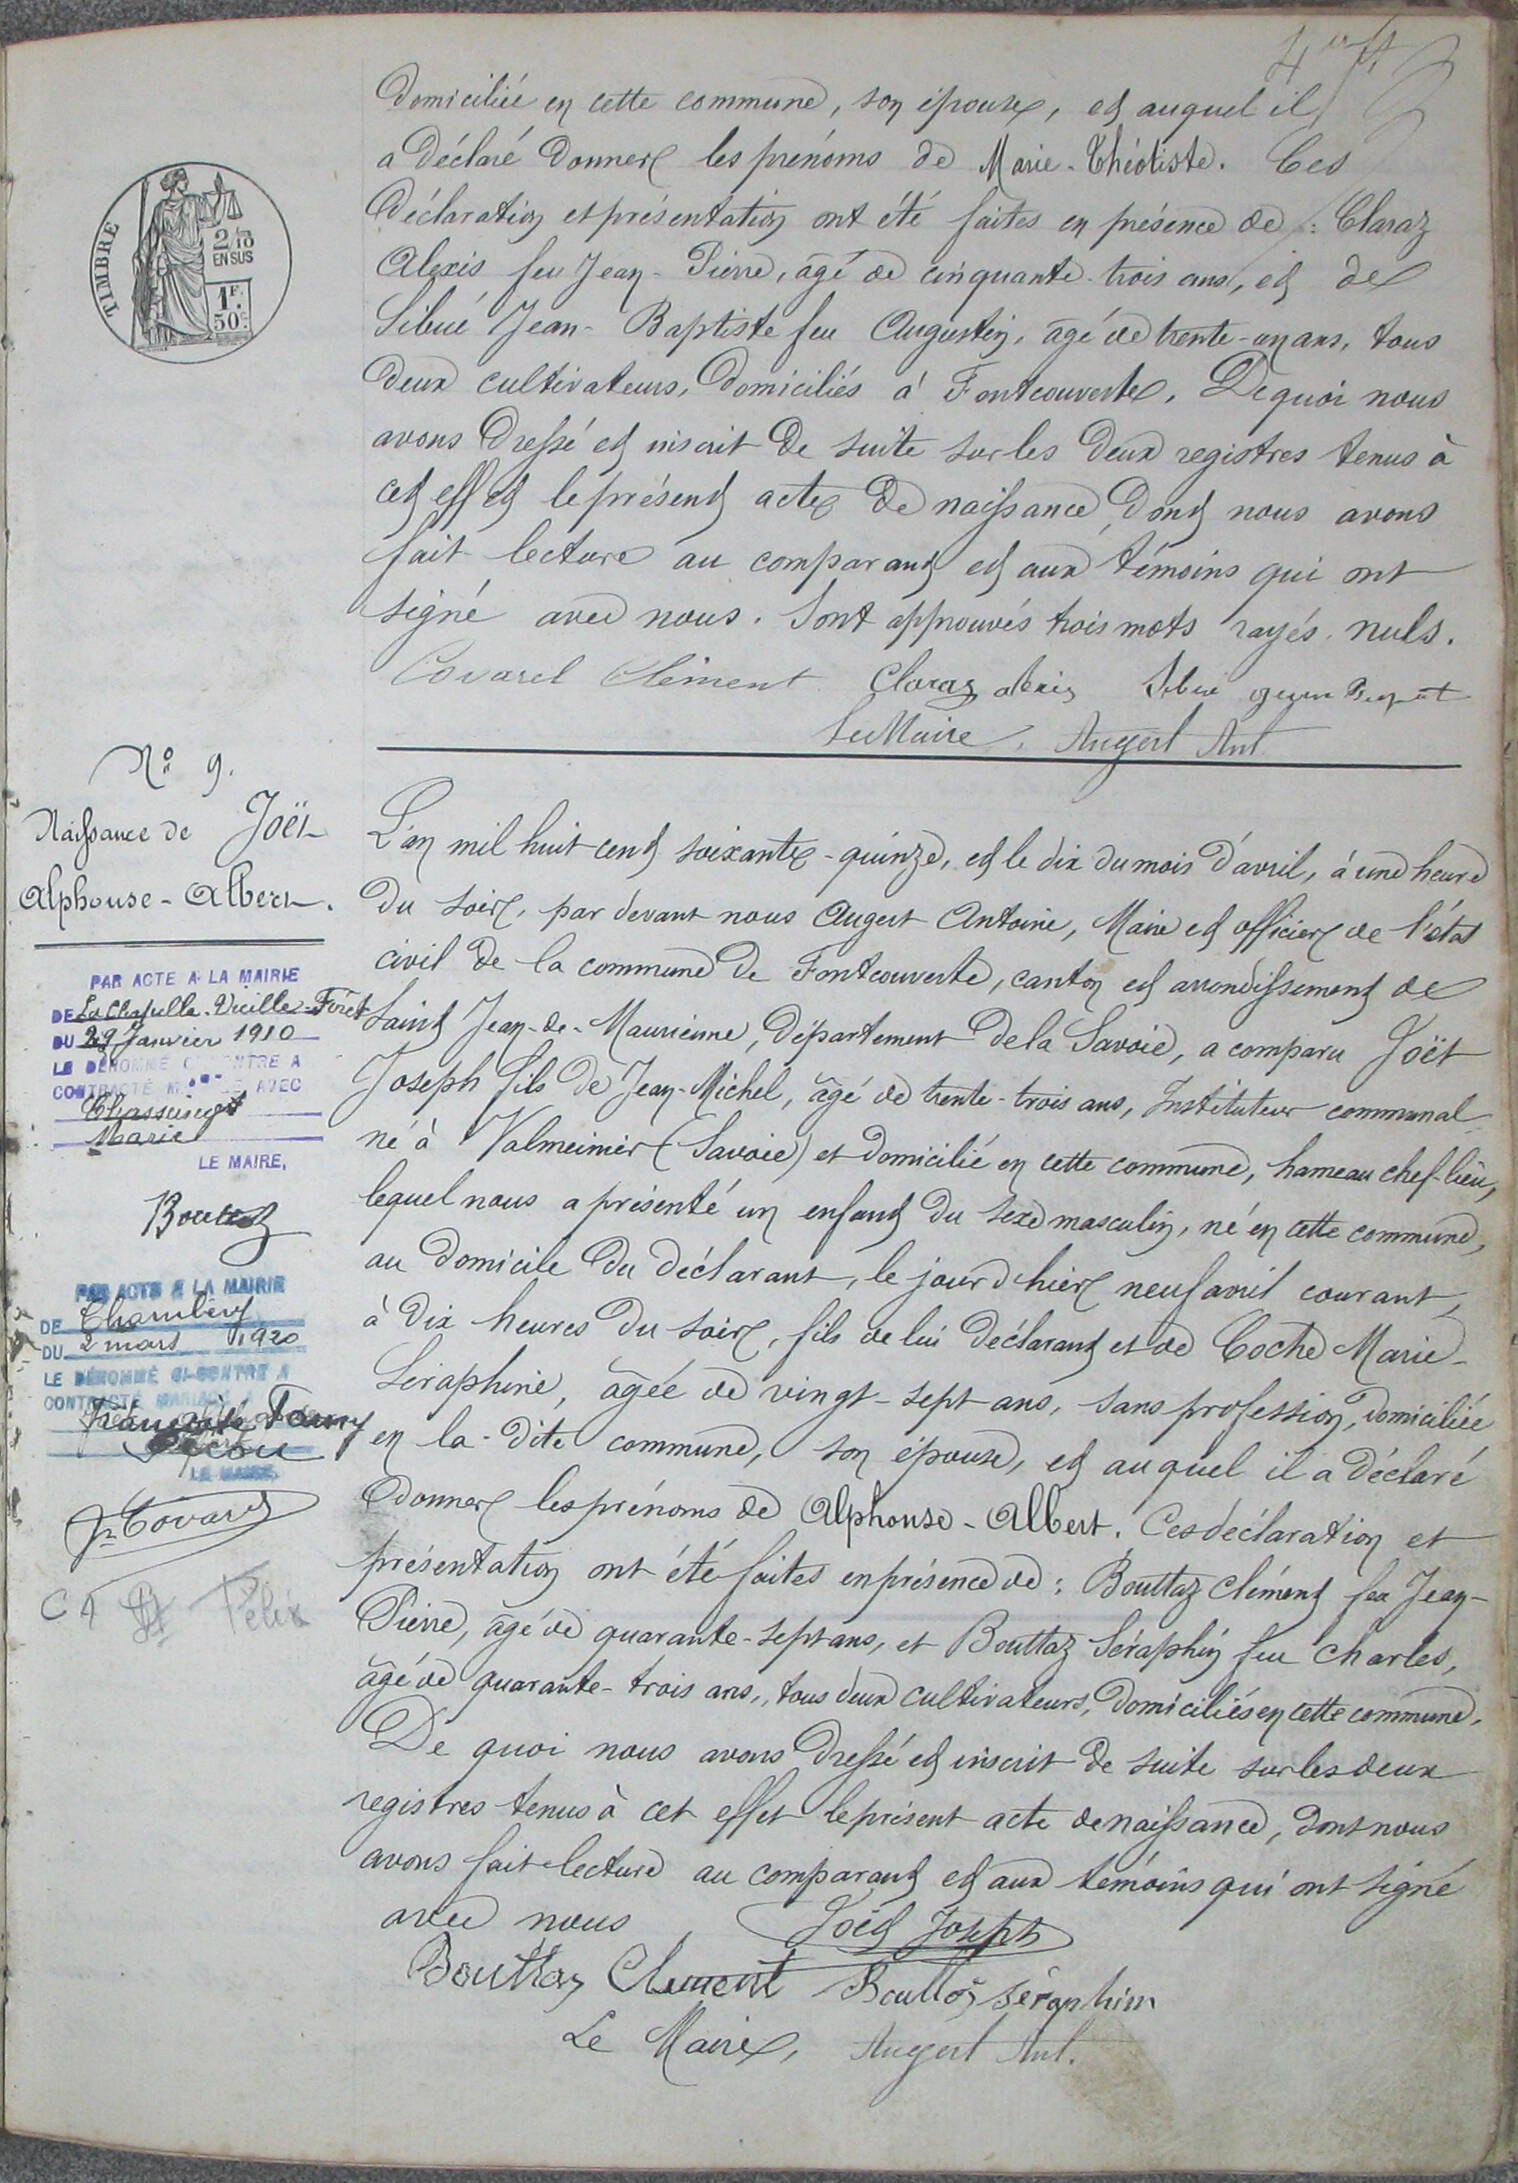 4
domiciliée en cette commune, son épouse, et auquel il
a déclaré donner les prénoms de Marie-Théotiste. Ces
déclaration et présentation ont été faites en présence de : Claraz
Alexis feu Jean-Pierre, âgé de cinquante-trois ans, et de
Sibué Jean-Baptiste feu Augustin, âgé de trente-un ans, tous
deux cultivateurs, domiciliés à Fontcouverte. De quoi nous
avons dressé et inscrit de suite sur les deux registres tenus à
cet effet le présent acte de naissance, dont nous avons
fait lecture au comparant et aux témoins qui ont
signé avec nous. Sont approuvés trois mots rayés nuls.
Covarel Clément Claraz alexis Sibué
Le Maire, Augert Ant
TIMBRE
2/10
EN SUS
1F.
50c.
No 9.
Naissance de Joët
Alphonse-Albert.
PAR ACTE A LA MAIRIE
DE La Chapelle-Vieille-Forêt
DU 29 Janvier 1910
LE DÉNOMMÉ CI-CONTRE A
CONTRACTÉ MARIAGE AVEC
Marie
LE MAIRE,
PAR ACTE A LA MAIRIE
DE Chambéry
DU 2 mars 1920
LE DÉNOMMÉ CI-CONTRE A
CONTRACTÉ MARIAGE A
Fanny
LE MAIRE
Félix
L'an mil huit cent soixante-quinze, et le dix du mois d'avril, à une heure
du soir, par devant nous Augert Antoine, Maire et officier de l'état
civil de la commune de Fontcouverte, canton et arrondissement de
Saint Jean-de-Maurienne, département de la Savoie, a comparu Joët
Joseph fils de Jean-Michel, âgé de trente-trois ans, Instituteur communal
né à Valmeinier (Savoie) et domicilié en cette commune, hameau chef-lieu,
lequel nous a présenté un enfant du sexe masculin, né en cette commune,
au domicile du déclarant, le jour d'hier neuf avril courant,
à dix heures du soir, fils de lui déclarant et de Coche Marie-
Séraphine, âgée de vingt-sept ans, sans profession, domiciliée
en la-dite commune, son épouse, et auquel il a déclaré
donner les prénoms de Alphonse-Albert. Ces déclaration et
présentation ont été faites en présence de : Bouttaz Clément feu Jean-
Pierre, âgé de quarante-sept ans, et Bouttaz Séraphin feu Charles,
âgé de quarante-trois ans, tous deux cultivateurs, domiciliés en cette commune.
De quoi nous avons dressé et inscrit de suite sur les deux
registres tenus à cet effet le présent acte de naissance, dont nous
avons fait lecture au comparant et aux témoins qui ont signé
avec nous Joët Joseph
Bouttaz Clement Bouttaz séraphin
Le Maire, Augert Ant.